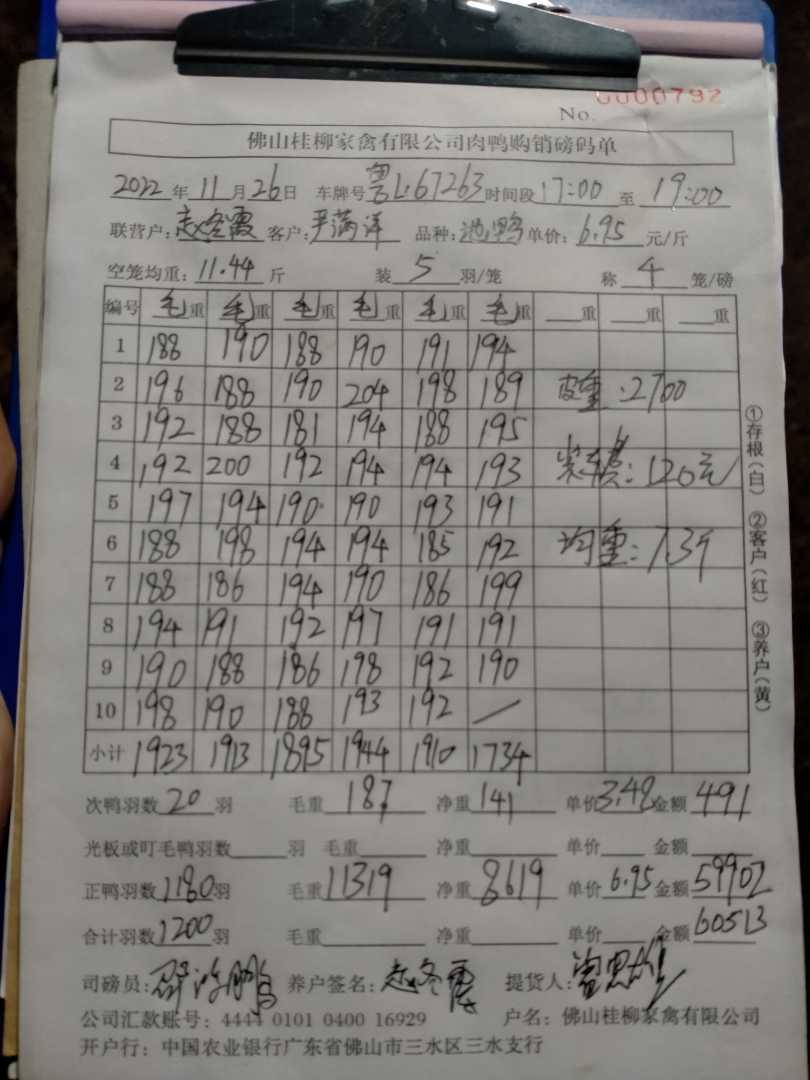 No. 0000792
佛山桂柳家禽有限公司肉鸭购销磅码单
2022年11月26日 车牌号粤L·67263时间段17:00至19:00
联营户:赵冬霞 客户:严满洋 品种: 单价:6.95元/斤
空笼均重:11.44斤 装5羽/笼 称4笼/磅
编号 毛重 毛重 毛重 毛重 毛重 毛重 重 重 重
1 188 190 188 190 191 194
2 196 188 190 204 198 189 皮重:2700
3 192 188 181 194 188 195
4 192 200 192 194 194 193 装车费:120元
5 197 194 190 190 193 191
6 188 198 194 194 185 192 均重:7.3斤
7 188 186 194 190 186 199
8 194 191 192 197 191 191
9 190 188 186 198 192 190
10 198 190 188 193 192 /
小计 1923 1913 1895 1944 1910 1734
次鸭羽数20羽 毛重187 净重141 单价3.48金额491
光板或叮毛鸭羽数 羽 毛重 净重 单价 金额
正鸭羽数1180羽 毛重11319 净重8619 单价6.95金额59902
合计羽数1200羽 毛重 净重 单价 金额60513
司磅员: 养户签名:赵冬霞 提货人:
公司汇款账号:4444 0101 0400 16929 户名:佛山桂柳家禽有限公司
开户行:中国农业银行广东省佛山市三水区三水支行
①存根(白) ②客户(红) ③养户(黄)